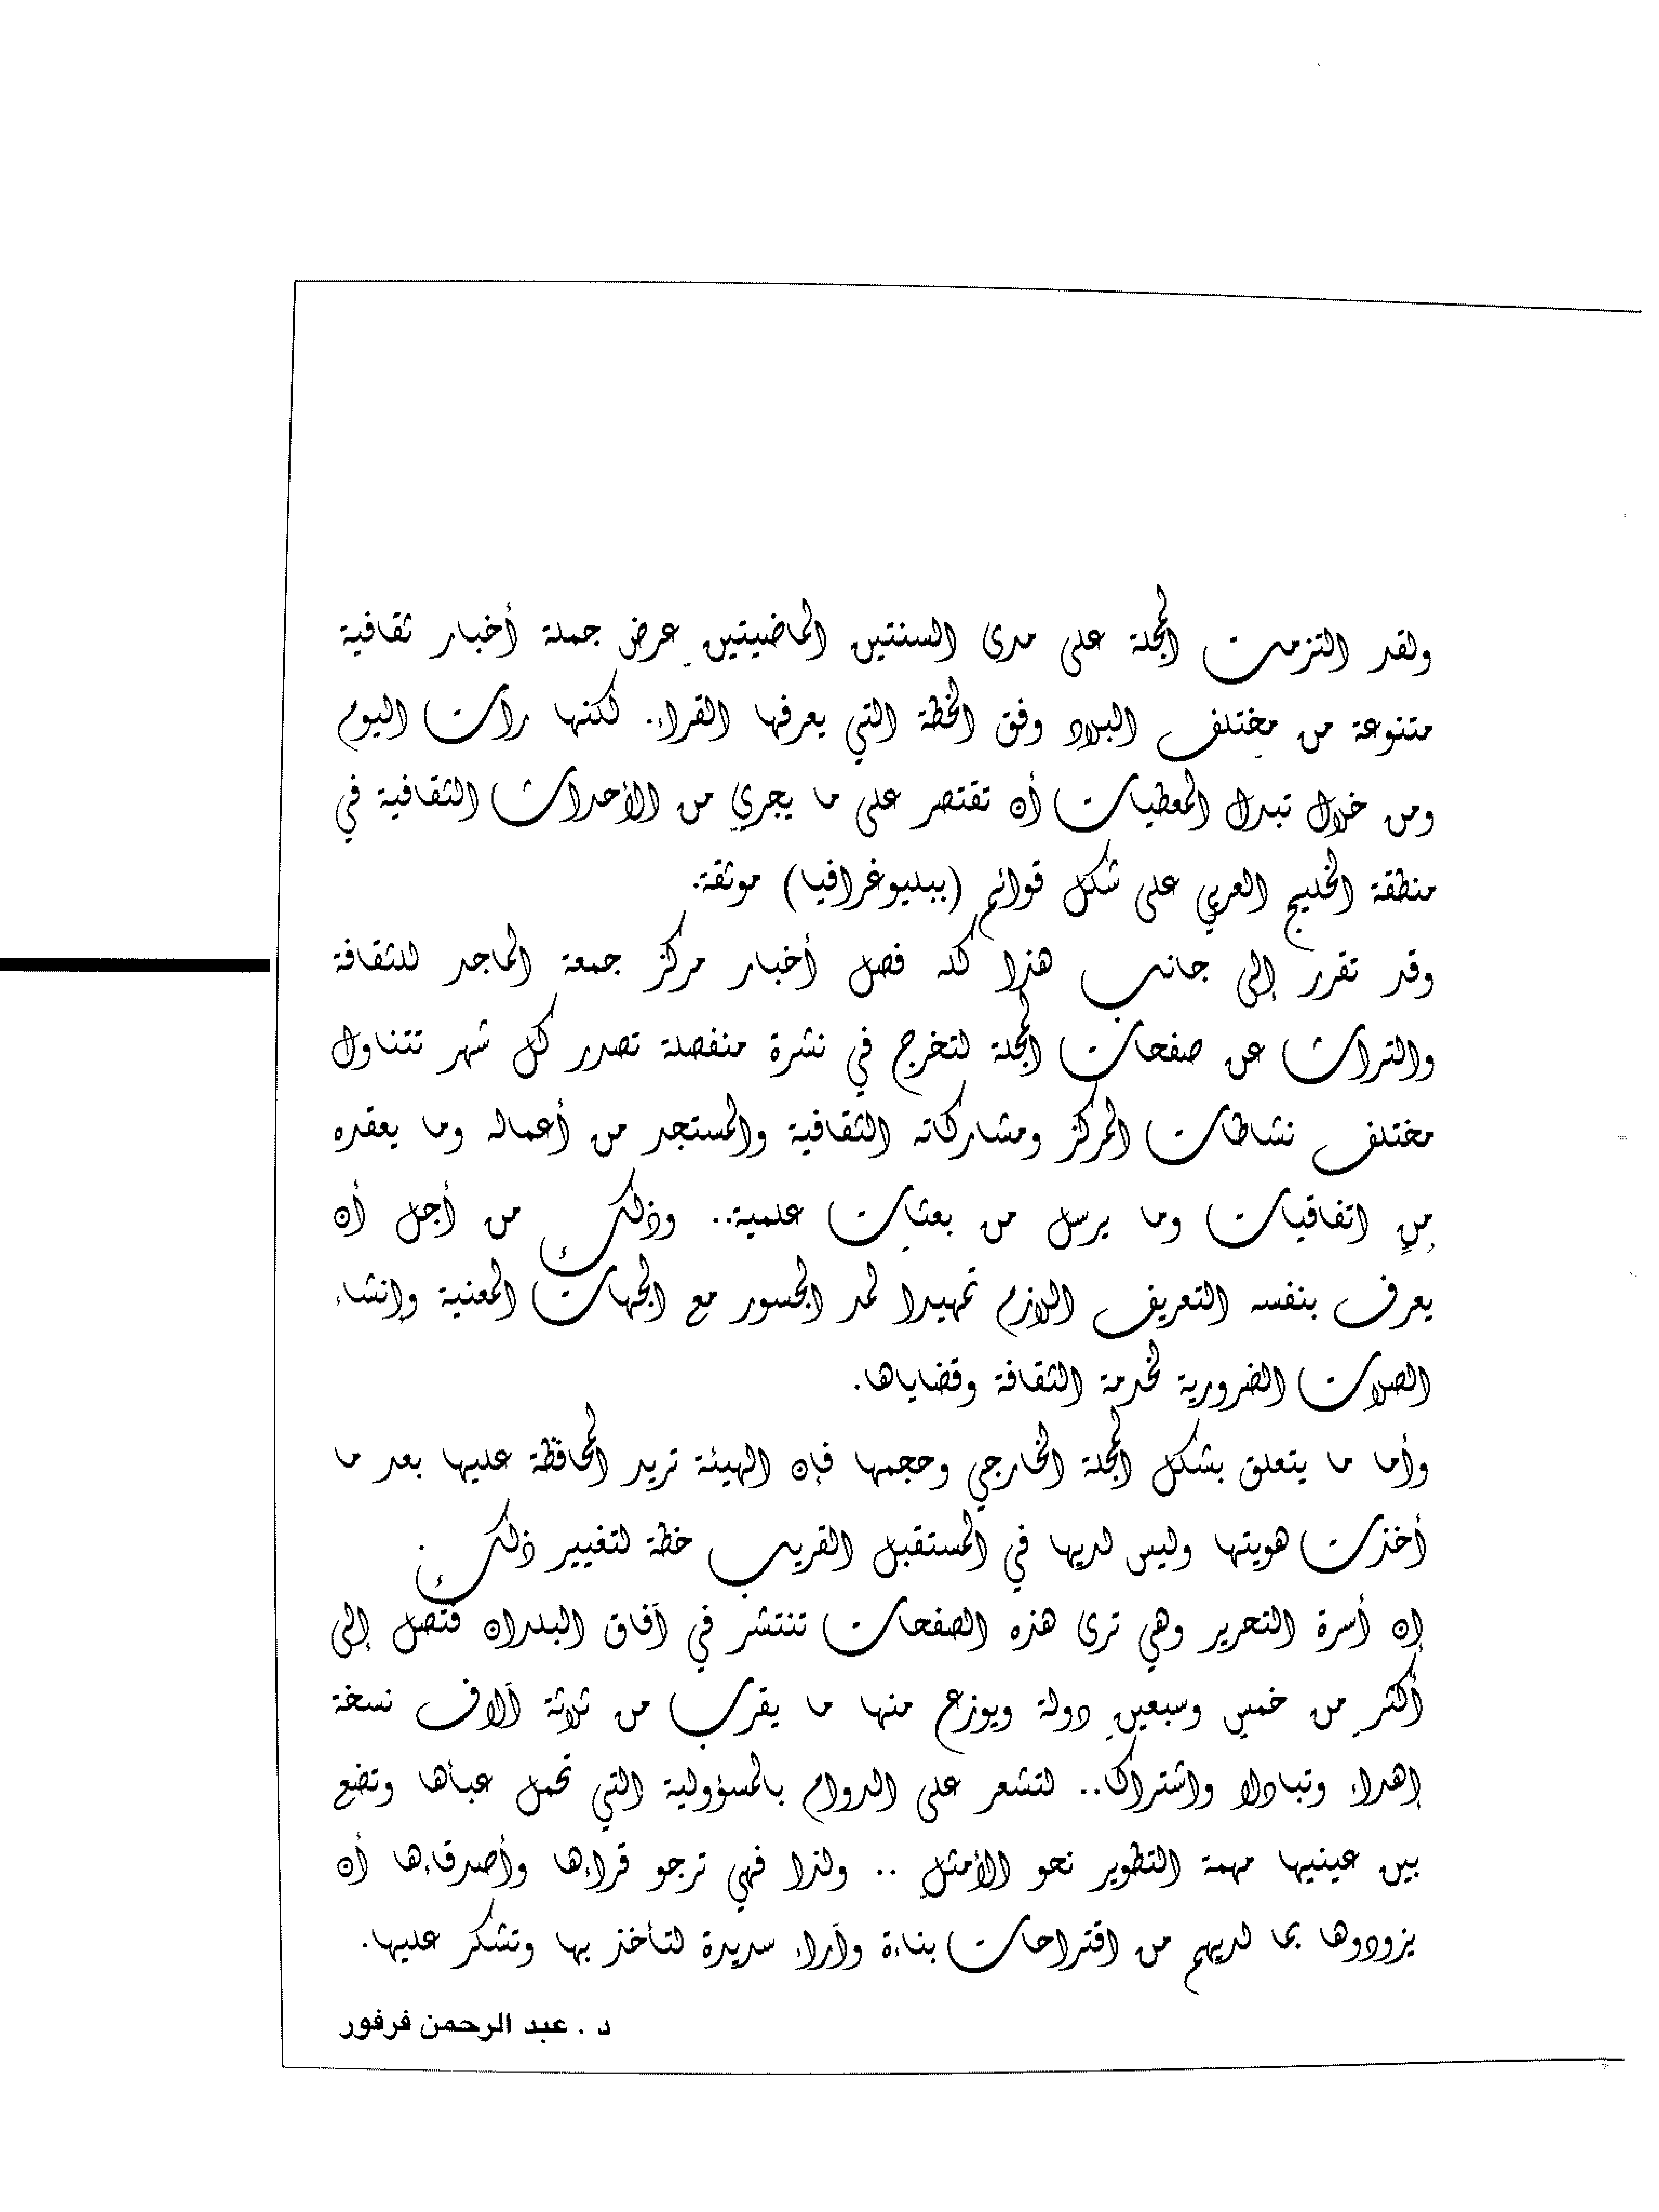 ولقد التزمت المجلة على مدى السنتين الماضيتين عرض جملة أخبار ثقافية
متنوعة من مختلف البلاد وفق الخطة التي يعرفها القراء. لكنها رأت اليوم
ومن خلال تبدل المعطيات أن تقتصر على ما يجري من الأحداث الثقافية في
منطقة الخليج العربي على شكل قوائم (ببليوغرافيا) موثقة.
وقد تقرر إلى جانب هذا كله فصل أخبار مركز جمعة الماجد للثقافة
والتراث عن صفحات المجلة لتخرج في نشرة منفصلة تصدر كل شهر تتناول
مختلف نشاطات المركز ومشاركاته الثقافية والمستجد من أعماله وما يعقده
من اتفاقيات وما يرسل من بعثات علمية.. وذلك من أجل أن
يعرف بنفسه التعريف اللازم تمهيدا لمد الجسور مع الجهات المعنية وإنشاء
الصلات الضرورية لخدمة الثقافة وقضاياها.
وأما ما يتعلق بشكل المجلة الخارجي وحجمها فإن الهيئة تريد المحافظة عليها بعد ما
أخذت هويتها وليس لديها في المستقبل القريب خطة لتغيير ذلك.
إن أسرة التحرير وهي ترى هذه الصفحات تنتشر في آفاق البلدان فتصل إلى
أكثر من خمس وسبعين دولة ويوزع منها ما يقرب من ثلاثة آلاف نسخة
إهداء وتبادلا واشتراكا.. لتشعر على الدوام بالمسؤولية التي تحمل عبأها وتضع
بين عينيها مهمة التطوير نحو الأمثل .. ولذا فهي ترجو قراءها وأصدقاءها أن
يزودوها بما لديهم من اقتراحات بناءة وآراء سديدة لتأخذ بها وتشكر عليها.
د . عبد الرحمن فرفور